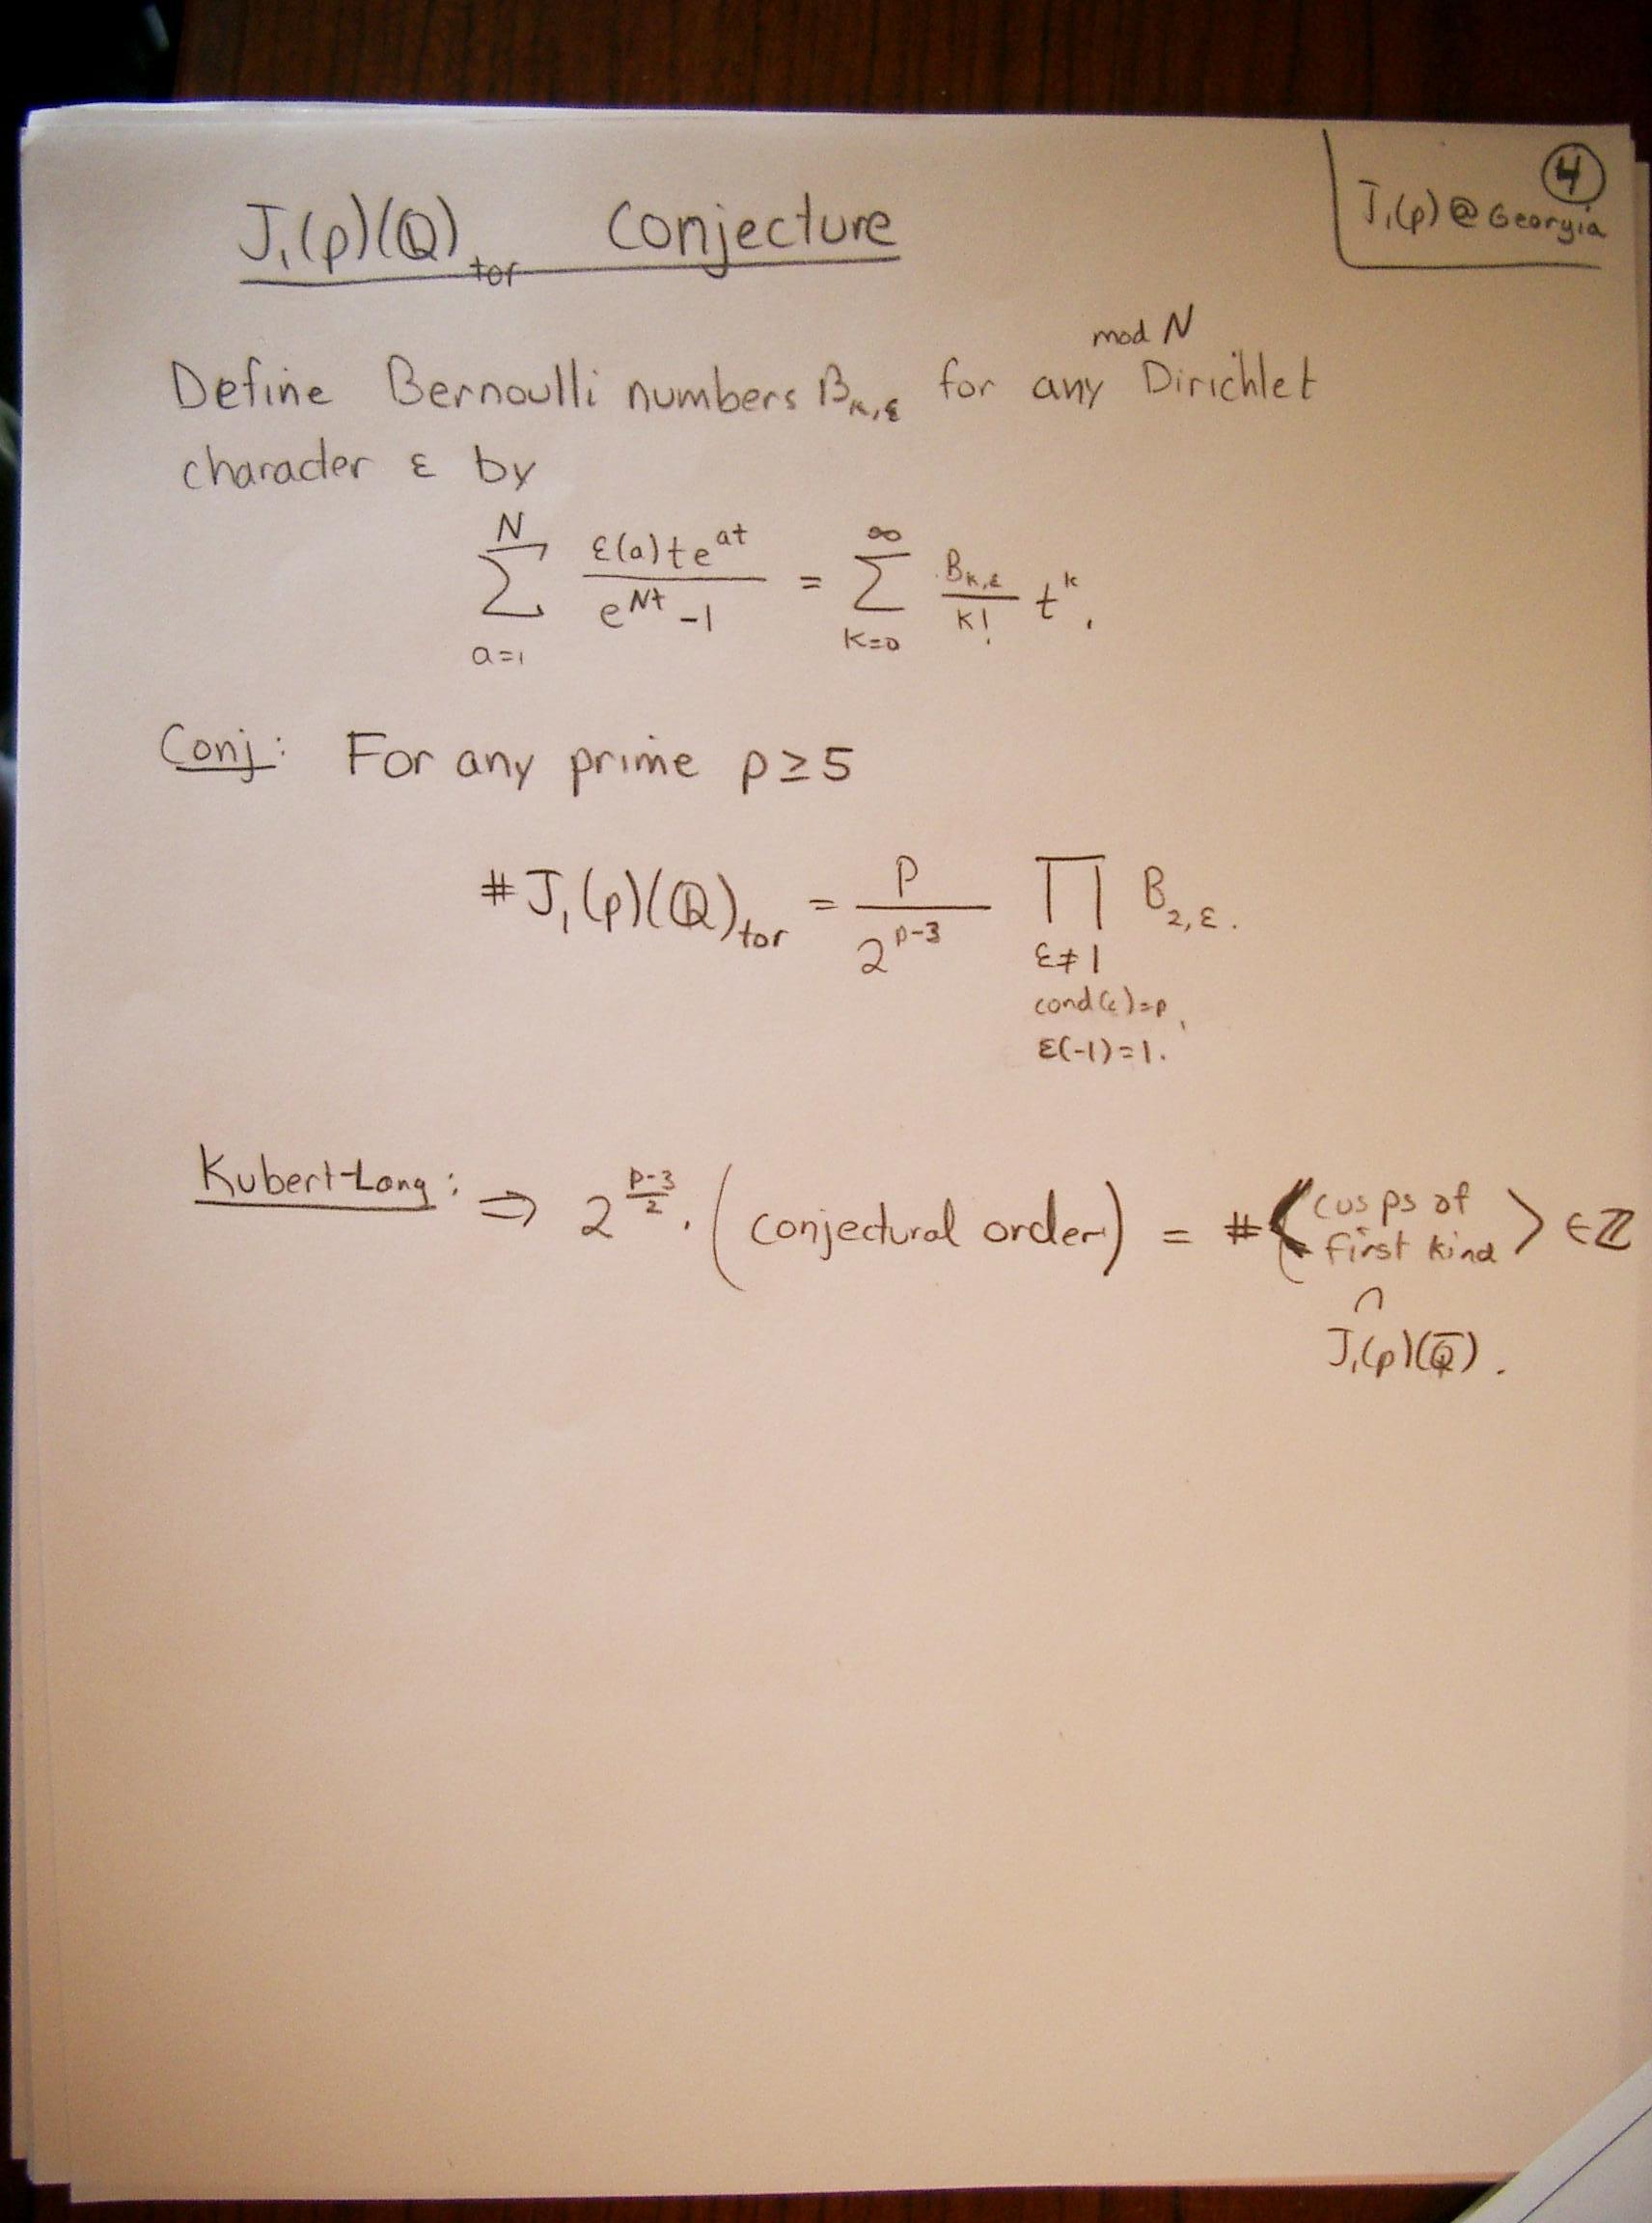 ④
J₁(p)@Georgia
J₁(p)(ℚ)_tor Conjecture
mod N
Define Bernoulli numbers B_{k,ε} for any Dirichlet
character ε by
\sum_{a=1}^{N} \frac{ε(a)te^{at}}{e^{Nt}-1} = \sum_{k=0}^{∞} \frac{B_{k,ε}}{k!} t^k.
Conj: For any prime p≥5
#J₁(p)(ℚ)_tor = \frac{p}{2^{p-3}} \prod_{ε≠1, cond(ε)=p, ε(-1)=1.} B_{2,ε}.
Kubert-Lang: ⇒ 2^{\frac{p-3}{2}}·(conjectural order) = #⟨cusps of first kind⟩ ∈ℤ
∩
J₁(p)(\bar{ℚ}).